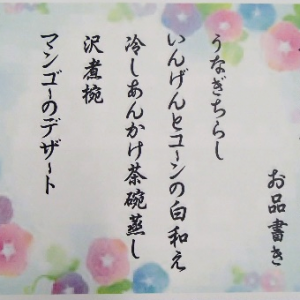 お品書き
うなぎちらし
いんげんとコーンの白和え
冷しあんかけ茶碗蒸し
沢煮椀
マンゴーのデザート